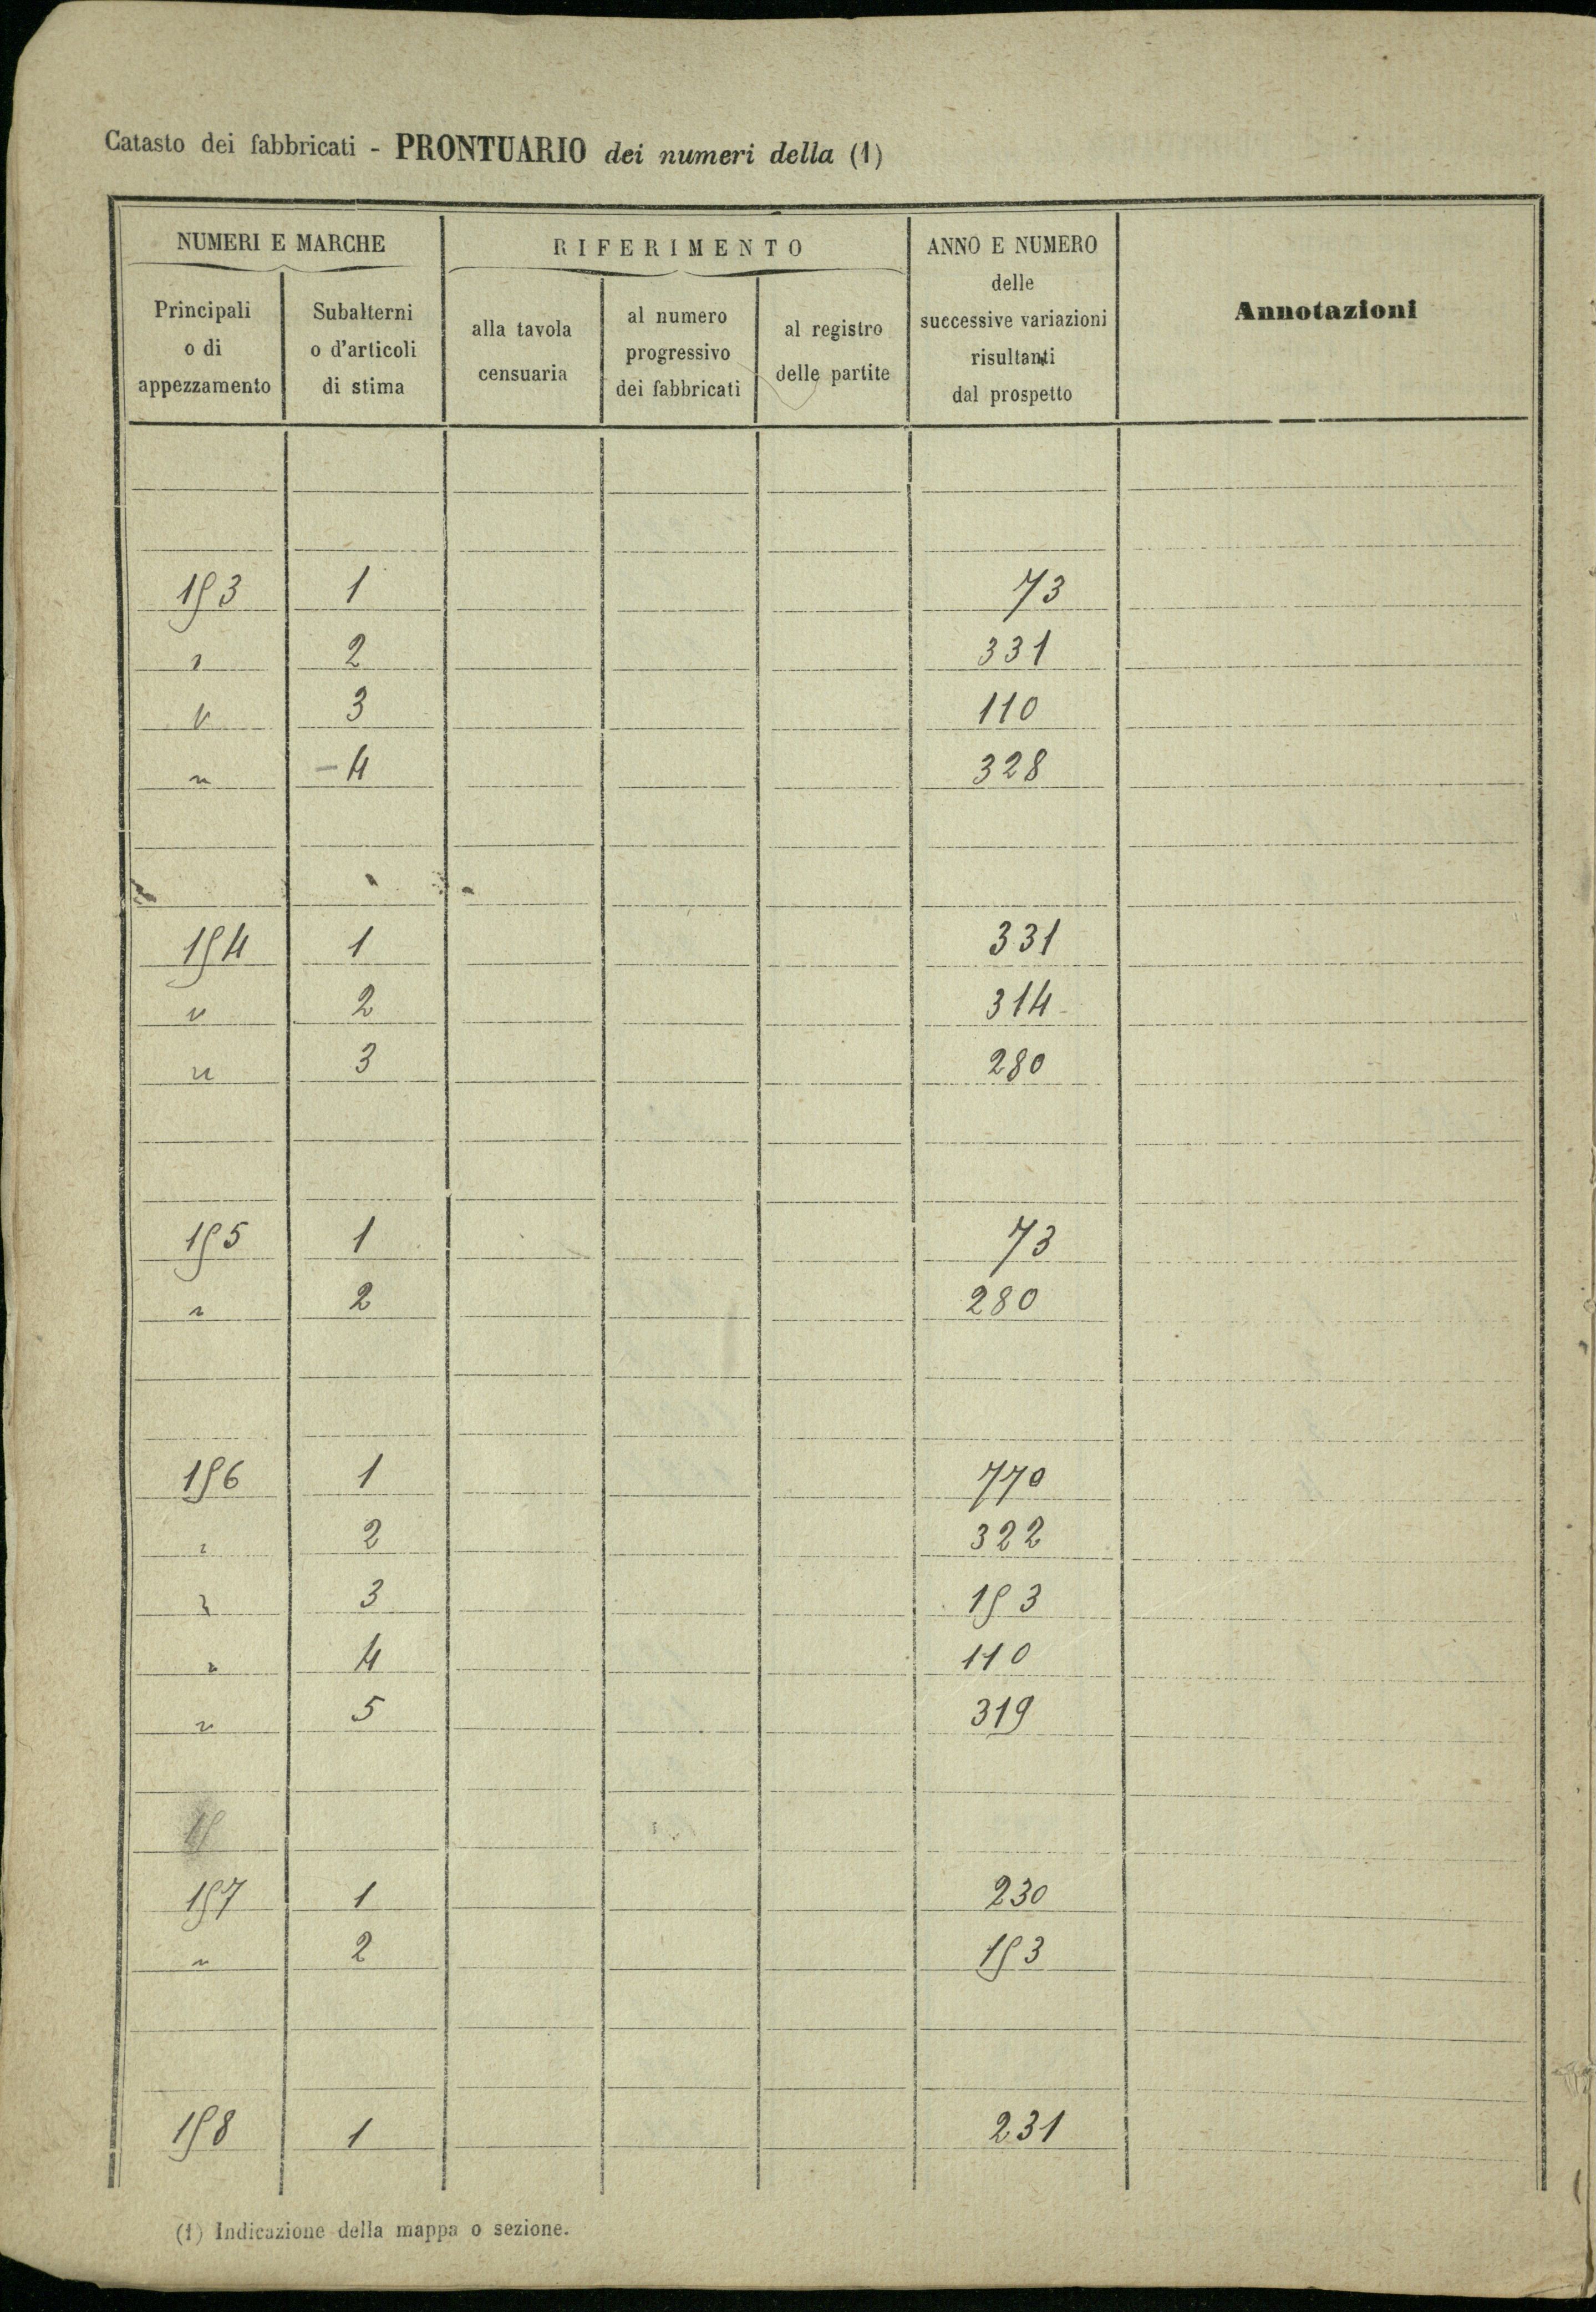 Catasto dei fabbricati - PRONTUARIO dei numeri della (1)
NUMERI E MARCHE
RIFERIMENTO
ANNO E NUMERO
delle
successive variazioni
risultanti
dal prospetto
Annotazioni
Principali
o di
appezzamento
Subalterni
o d'articoli
di stima
alla tavola
censuaria
al numero
progressivo
dei fabbricati
al registro
delle partite
153 1 73
" 2 331
" 3 110
" - 4 328
154 1 331
" 2 314
" 3 280
155 1 73
" 2 280
156 1 770
" 2 322
" 3 153
" 4 110
" 5 319
157 1 230
" 2 153
158 1 231
(1) Indicazione della mappa o sezione.